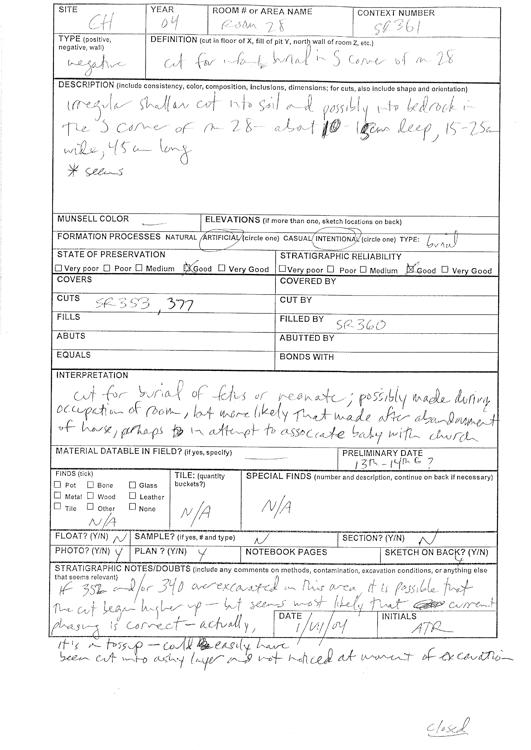 SITE CH YEAR 04 ROOM # OR AREA NAME Room 28 CONTEXT NUMBER SR361
TYPE (positive, negative, wall) negative DEFINITION (cut in floor of X, fill of pit Y, north wall of room Z, etc.) cut for infant burial in S corner of rm 28
DESCRIPTION (include consistency, color, composition, inclusions, dimensions; for cuts, also include shape and orientation)
irregular shallow cut into soil and possibly into bedrock in
the S corner of rm 28 - about 10 - 15cm deep, 15-25cm
wide, 45cm long
* seems
MUNSELL COLOR — ELEVATIONS (if more than one, sketch locations on back)
FORMATION PROCESSES NATURAL / ARTIFICIAL (circle one) CASUAL / INTENTIONAL (circle one) TYPE: burial
STATE OF PRESERVATION STRATIGRAPHIC RELIABILITY
☐ Very poor ☐ Poor ☐ Medium ☒ Good ☐ Very Good ☐ Very poor ☐ Poor ☐ Medium ☒ Good ☐ Very Good
COVERS COVERED BY
CUTS SR353, 377 CUT BY
FILLS FILLED BY SR360
ABUTS ABUTTED BY
EQUALS BONDS WITH
INTERPRETATION
cut for burial of fetus or neonate; possibly made during
occupation of room, but more likely that made after abandonment
of house, perhaps in attempt to associate baby with church
MATERIAL DATABLE IN FIELD? (if yes, specify) — PRELIMINARY DATE 13th-14th c?
FINDS (tick) TILE: (quantity buckets?) SPECIAL FINDS (number and description, continue on back if necessary)
☐ Pot ☐ Bone ☐ Glass
☐ Metal ☐ Wood ☐ Leather
☐ Tile ☐ Other ☐ None
N/A N/A N/A
FLOAT? (Y/N) N SAMPLE? (if yes, # and type) N SECTION? (Y/N) N
PHOTO? (Y/N) Y PLAN? (Y/N) Y NOTEBOOK PAGES SKETCH ON BACK? (Y/N)
STRATIGRAPHIC NOTES/DOUBTS (include any comments on methods, contamination, excavation conditions, or anything else that seems relevant)
If 352 and/or 340 overexcavated in this area, it is possible that
the cut began higher up - but seems most likely that current
phasing is correct - actually, DATE 1/VII/04 INITIALS ATR
it's a tossup - could easily have
been cut into ashy layer and not noticed at moment of excavation
closed